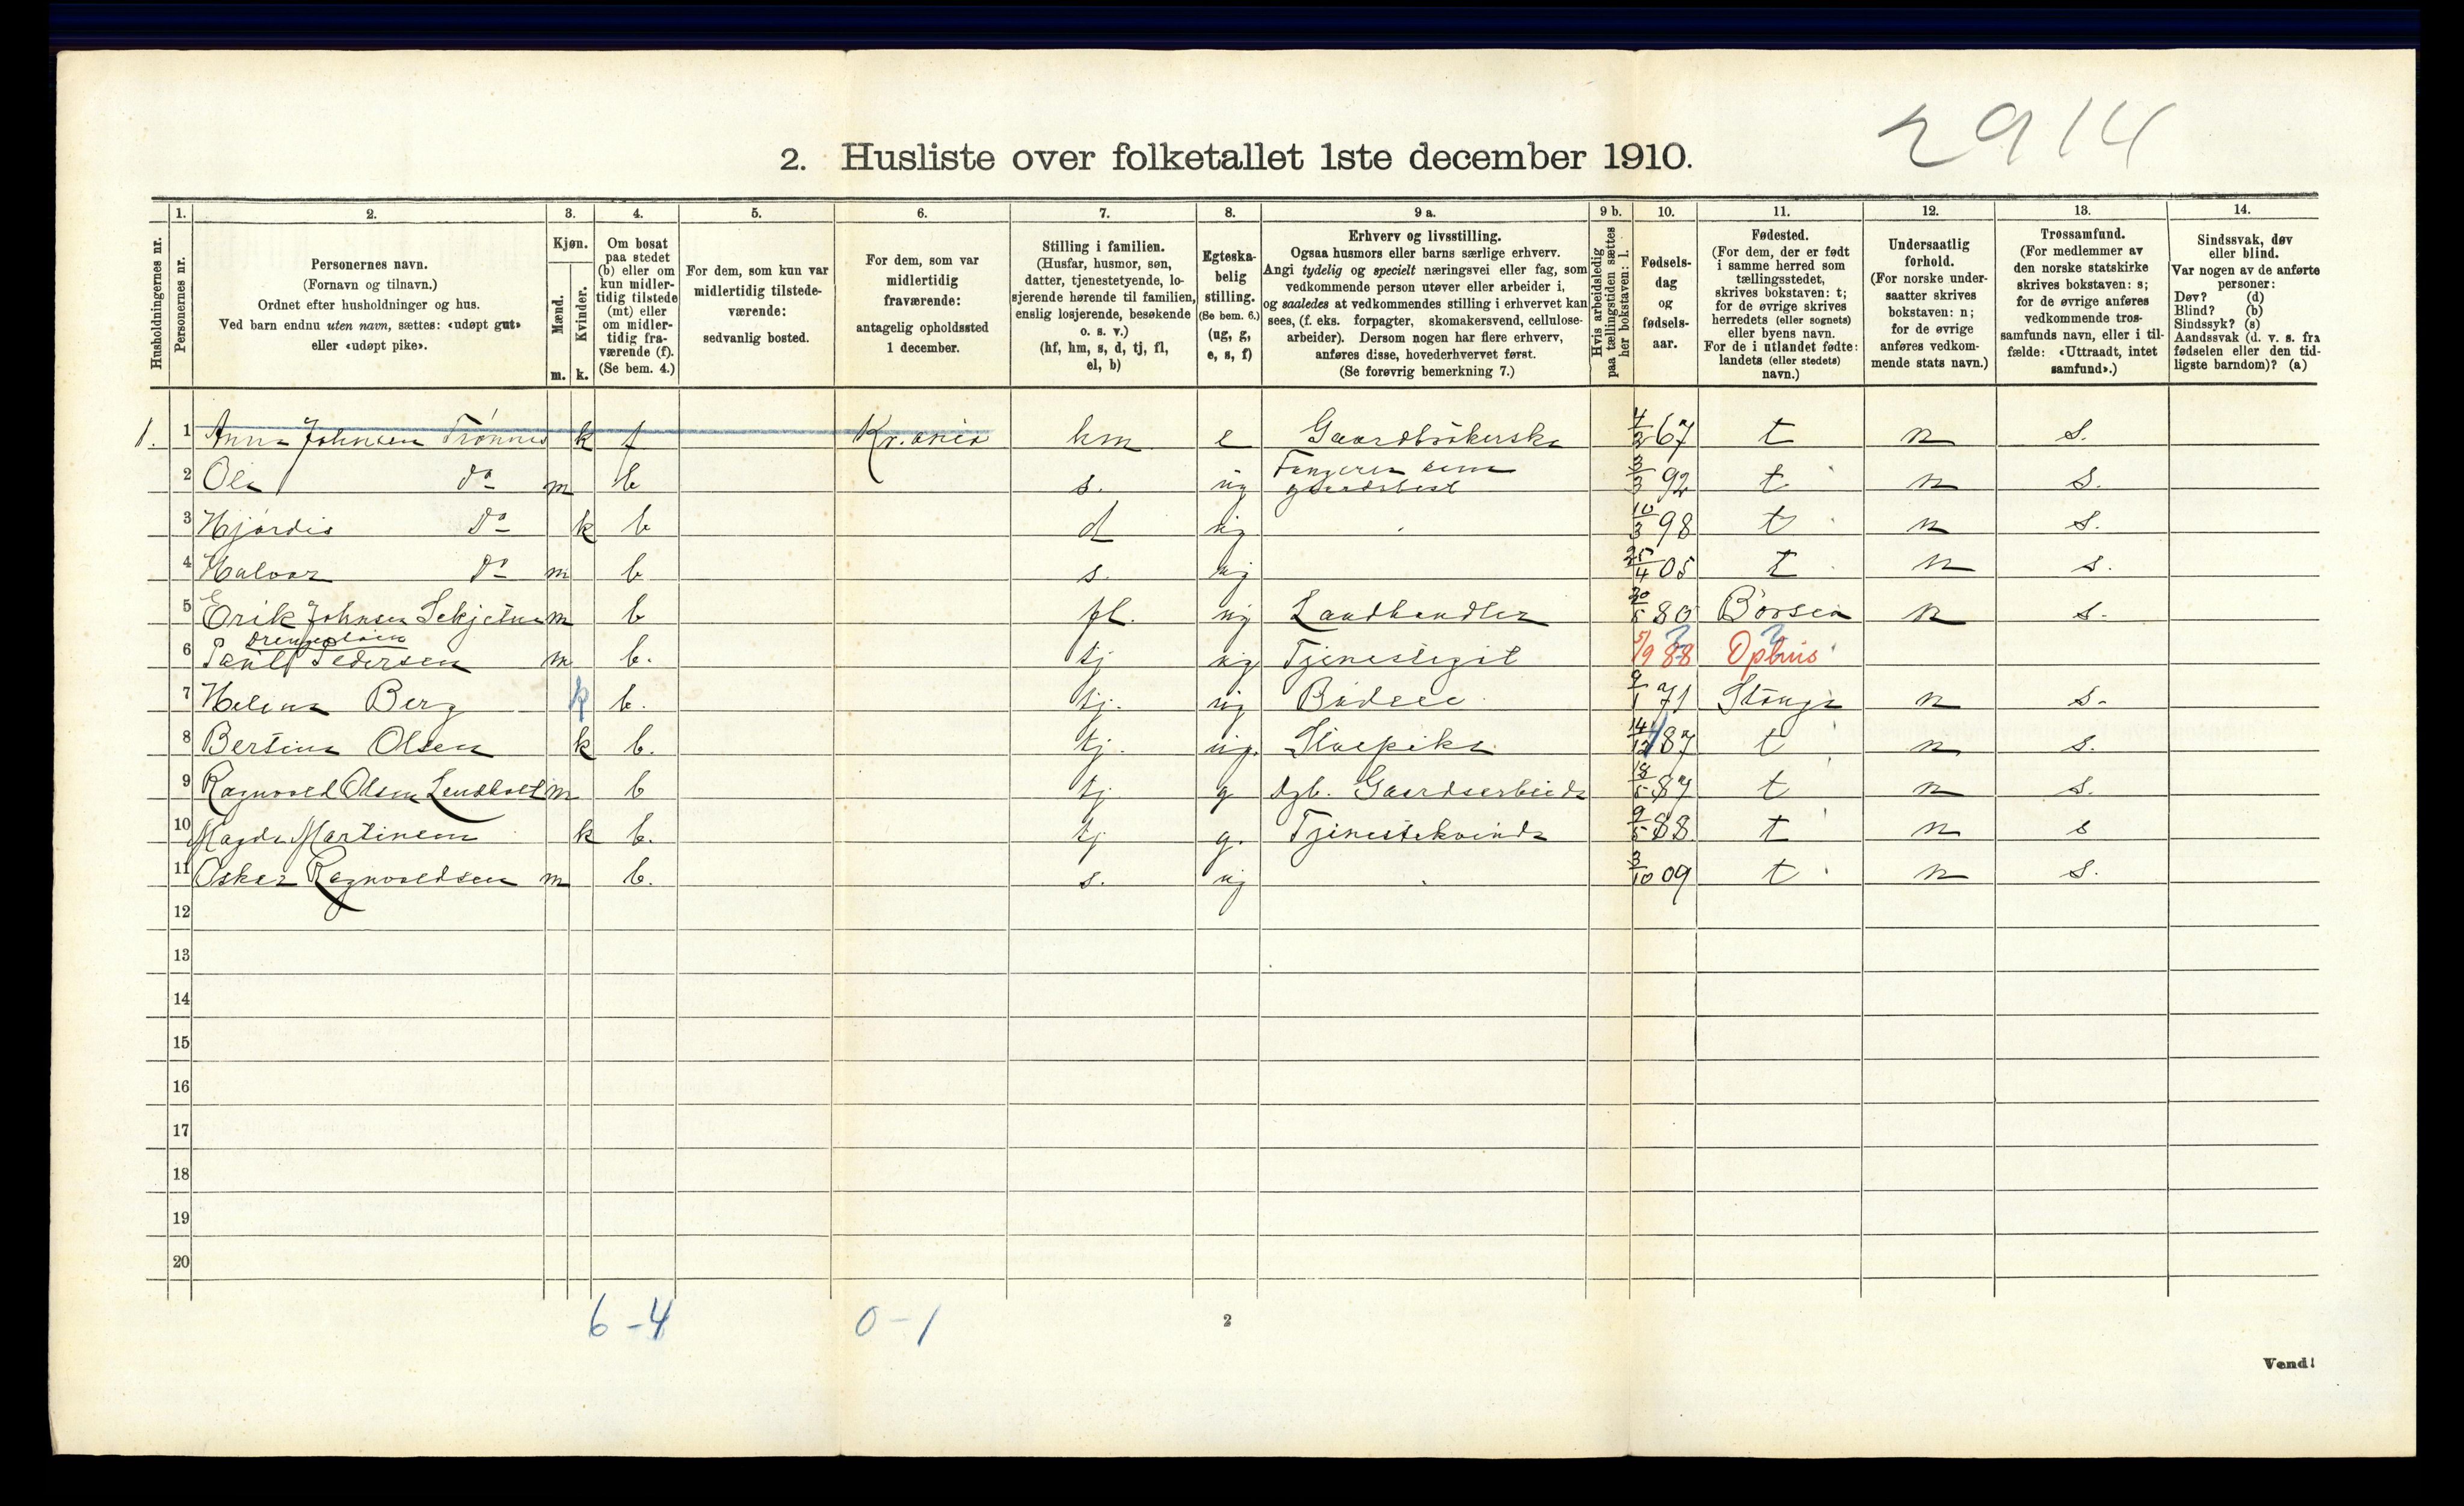 2914
2. Husliste over folketallet 1ste december 1910.
Husholdningernes nr.
1. Personernes nr.
2. Personernes navn.
(Fornavn og tilnavn.)
Ordnet efter husholdninger og hus.
Ved barn endnu uten navn, sættes: «udøpt gut»
eller «udøpt pike».
3. Kjøn.
Mænd. m.
Kvinder. k.
4. Om bosat
paa stedet
(b) eller om
kun midler-
tidig tilstede
(mt) eller
om midler-
tidig fra-
værende (f).
(Se bem. 4.)
5. For dem, som kun var
midlertidig tilstede-
værende:
sedvanlig bosted.
6. For dem, som var
midlertidig
fraværende:
antagelig opholdssted
1 december.
7. Stilling i familien.
(Husfar, husmor, søn,
datter, tjenestetyende, lo-
sjerende hørende til familien,
enslig losjerende, besøkende
o. s. v.)
(hf, hm, s, d, tj, fl,
el, b)
8. Egteska-
belig
stilling.
(Se bem. 6.)
(ug, g,
e, s, f)
9 a. Erhverv og livsstilling.
Ogsaa husmors eller barns særlige erhverv.
Angi tydelig og specielt næringsvei eller fag, som
vedkommende person utøver eller arbeider i,
og saaledes at vedkommendes stilling i erhvervet kan
sees, (f. eks. forpagter, skomakersvend, cellulose-
arbeider). Dersom nogen har flere erhverv,
anføres disse, hovederhvervet først.
(Se forøvrig bemerkning 7.)
9 b. Hvis arbeidsledig
paa tællingstiden sættes
her bokstaven: l.
10. Fødsels-
dag
og
fødsels-
aar.
11. Fødested.
(For dem, der er født
i samme herred som
tællingsstedet,
skrives bokstaven: t;
for de øvrige skrives
herredets (eller sognets)
eller byens navn.
For de i utlandet fødte:
landets (eller stedets)
navn.)
12. Undersaatlig
forhold.
(For norske under-
saatter skrives
bokstaven: n;
for de øvrige
anføres vedkom-
mende stats navn.)
13. Trossamfund.
(For medlemmer av
den norske statskirke
skrives bokstaven: s;
for de øvrige anføres
vedkommende tros-
samfunds navn, eller i til-
fælde: «Uttraadt, intet
samfund».)
14. Sindssvak, døv
eller blind.
Var nogen av de anførte
personer:
Døv? (d)
Blind? (b)
Sindssyk? (s)
Aandssvak (d. v. s. fra
fødselen eller den tid-
ligste barndom)? (a)
1. 1 Anna Johnsen Trønnes k f Kr.ania hm e Gaardbrukerske 4/3 67 t n s.
2 Ola do m b s. ug Fungerer som gaardsbest 3/3 92 t n s.
3 Hjørdis do k b d ug 10/3 98 t n s.
4 Halvor do m b s. ug 25/4 05 t n s.
5 Erik Johnsen m b fl. ug Landhandler 30/5 80 Børsen n s.
6 Paul Pedersen m b. tj ug Tjenestegut 5/9 88 Ophus
7 Helena Berg k b. tj. ug Budeie 9/1 71 Stange n s.
8 Bertine Olsen k b. tj. ug. Stuepike 14/12 87 t n s.
9 Ragnvald Olsen m b tj g dgb. Gaardsarbeid 18/5 87 t n s.
10 Magda Martinsen k b. tj g. Tjenestekvinde 9/5 88 t n s
11 Oskar Ragnvaldsen m b. s. ug 3/10 09 t n s.
12
13
14
15
16
17
18
19
20
6-4 0-1
2
Vend!